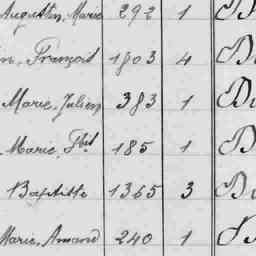 Augustin, Marie 292 1
François 1803 4
Marie, Julien 383 1
Marie, Fbt 185 1
Baptiste 1365 3
Marie, Amand 240 1